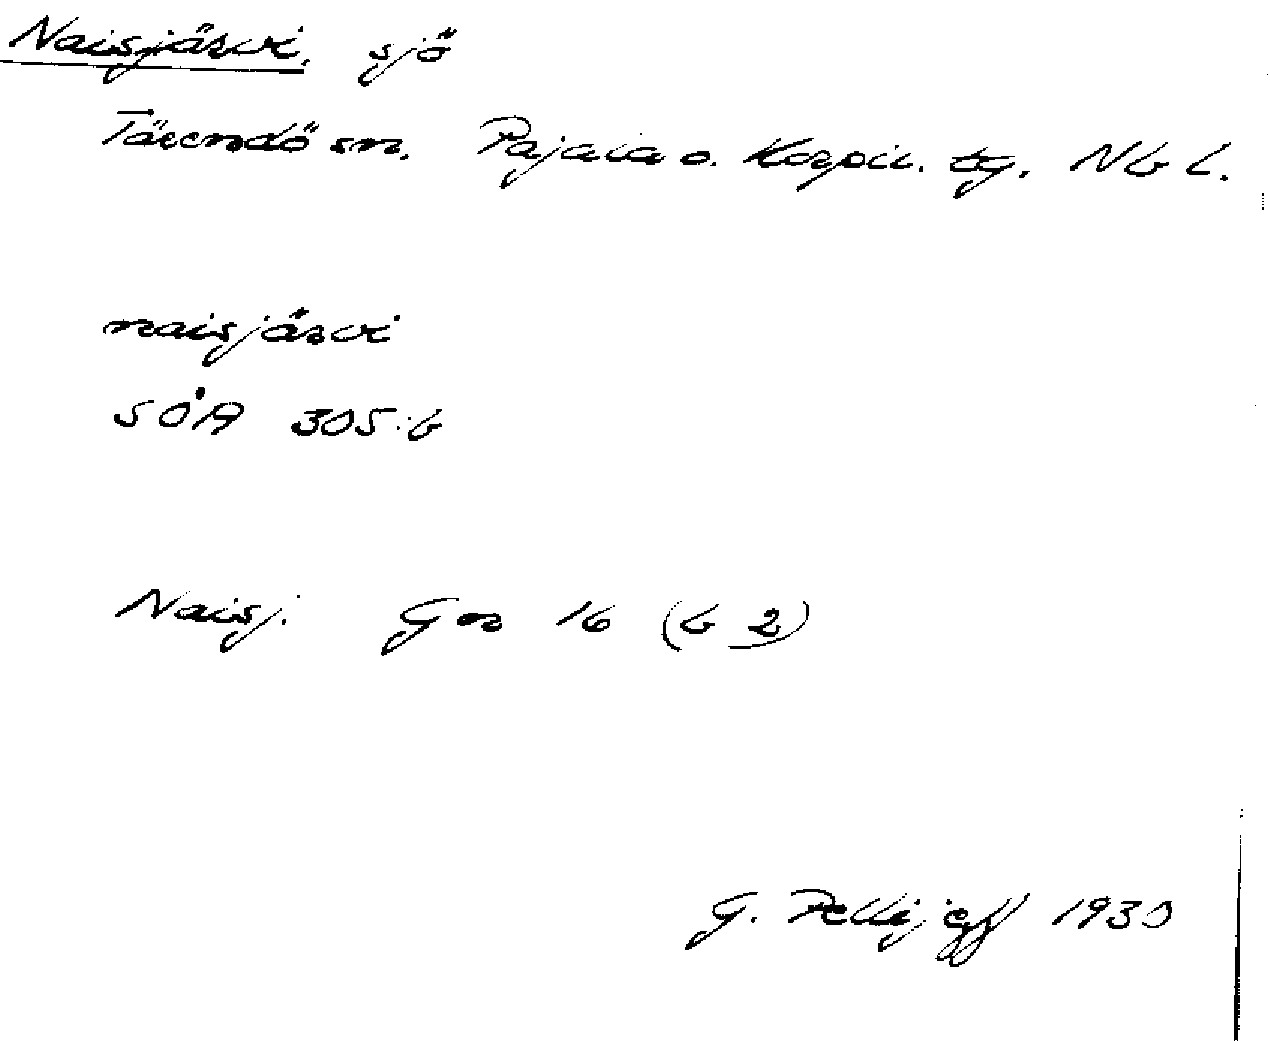 Naisjärvi, sjö
Tärendö sn. Pajala o. Korpil. tg. Nb l.
naisjärvi
SOÄ 305:6
Naisj. Gn 16 (b 2)
G. Pellijeff 1930